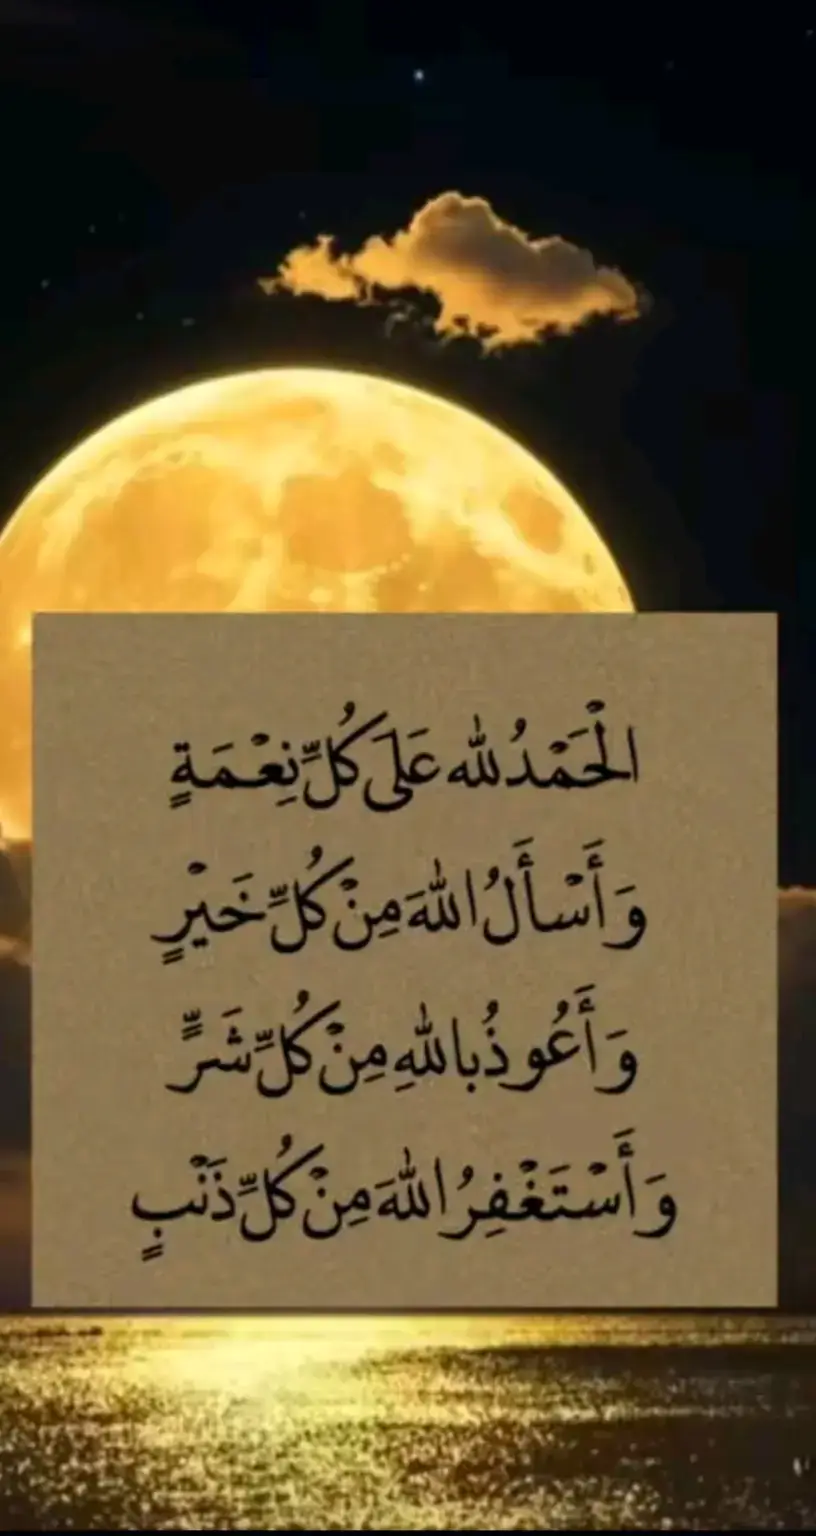 الْحَمْدُ لله عَلَى كُلِّ نِعْمَةٍ
وَأَسْأَلُ اللهَ مِنْ كُلِّ خَيْرٍ
وَأَعُوذُ بِاللهِ مِنْ كُلِّ شَرٍّ
وَأَسْتَغْفِرُ اللهَ مِنْ كُلِّ ذَنْبٍ